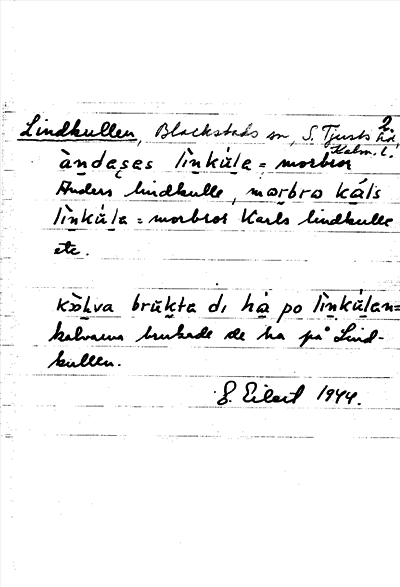 2.
Lindkullen, Blackstads sn, S. Tjusts hd,
Kalm. l.
àndaṣes lìnkúla = morbror
Anders lindkulle, morbro káls
lìnkúla = morbror Karls lindkulle
etc.
kɔ̀lva brùkta dı há po lìnkúlan =
kalvarna brukade de ha på Lind-
kullen.
G. Eilert 1944.